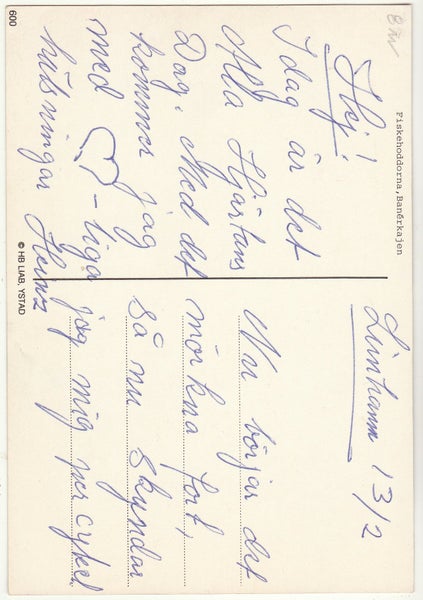 Fiskehoddorna, Banérkajen
Hej!
I dag är det
Alla Hjärtans
Dag. Med det
kommer jag
med ♡-liga
hälsningar Heinz
Limhamn 13/2
Nu börjar det
mörkna fort,
så nu skyndar
jag mig per cykel.
600
© HB LIAB, YSTAD